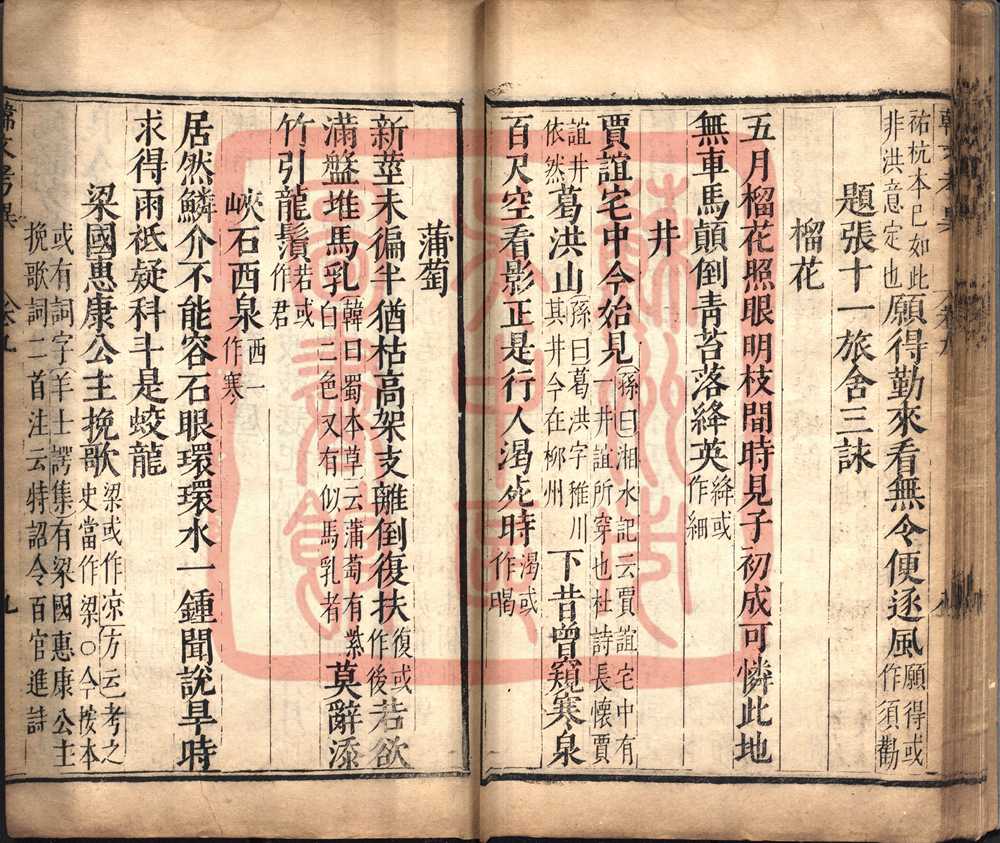 祐杭本已如此非洪意定也願得勤來看無令便逐風願得或作須勸
題張十一旅舍三詠
榴花
五月榴花照眼明枝間時見子初成可憐此地
無車馬顛倒青苔落絳英絳或作細
井
賈誼宅中今始見孫曰湘水記云賈誼宅中有一井誼所穿也杜詩長懷賈
誼井依然葛洪山孫曰葛洪字稚川其井今在柳州下昔曾窺寒泉
百尺空看影正是行人渴死時渴或作暍
蒲萄
新莖未徧半猶枯高架支離倒復扶復或作後若欲
滿盤堆馬乳韓曰蜀本草云蒲萄有紫白二色又有似馬乳者莫辭添
竹引龍鬚若或作君
峽石西泉西一作寒
居然鱗介不能容石眼環環水一鍾聞說旱時
求得雨祗疑科斗是蛟龍
梁國惠康公主挽歌梁或作凉方云考之史當作梁○今按本
或有詞字羊士諤集有梁國惠康公主挽歌詞二首注云特詔令百官進詩